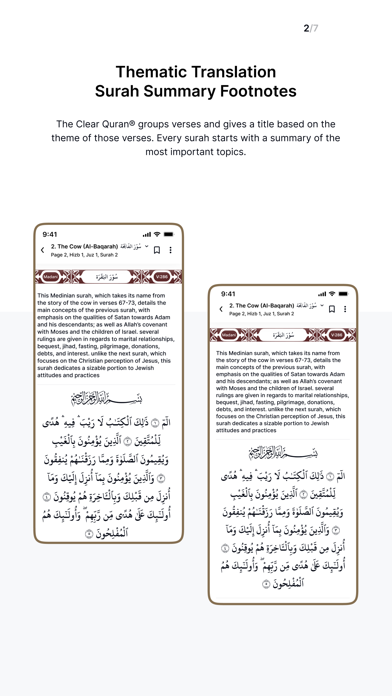 2/7
Thematic Translation
Surah Summary Footnotes
The Clear Quran® groups verses and gives a title based on the
theme of those verses. Every surah starts with a summary of the
most important topics.
9:41
2. The Cow (Al-Baqarah)
Page 2, Hizb 1, Juz 1, Surah 2
Madani
سُورَةُ البَقَرَة
V:286
This Medinian surah, which takes its name from
the story of the cow in verses 67-73, details the
main concepts of the previous surah, with
emphasis on the qualities of Satan towards Adam
and his descendants; as well as Allah's covenant
with Moses and the children of Israel. several
rulings are given in regards to marital relationships,
bequest, jihad, fasting, pilgrimage, donations,
debts, and interest. unlike the next surah, which
focuses on the Christian perception of Jesus, this
surah dedicates a sizable portion to Jewish
attitudes and practices
الٓمٓ ١ ذَٰلِكَ ٱلْكِتَٰبُ لَا رَيْبَ ۛ فِيهِ ۛ هُدًى
لِّلْمُتَّقِينَ ٢ ٱلَّذِينَ يُؤْمِنُونَ بِٱلْغَيْبِ
وَيُقِيمُونَ ٱلصَّلَوٰةَ وَمِمَّا رَزَقْنَٰهُمْ يُنفِقُونَ
٣ وَٱلَّذِينَ يُؤْمِنُونَ بِمَآ أُنزِلَ إِلَيْكَ وَمَآ
أُنزِلَ مِن قَبْلِكَ وَبِٱلْءَاخِرَةِ هُمْ يُوقِنُونَ ٤
أُو۟لَٰٓئِكَ عَلَىٰ هُدًى مِّن رَّبِّهِمْ ۖ وَأُو۟لَٰٓئِكَ هُمُ
ٱلْمُفْلِحُونَ ٥
9:41
2. The Cow (Al-Baqarah)
Page 2, Hizb 1, Juz 1, Surah 2
Madani
سُورَةُ البَقَرَة
V:286
This Medinian surah, which takes its name from
the story of the cow in verses 67-73, details the
main concepts of the previous surah, with
emphasis on the qualities of Satan towards Adam
and his descendants; as well as Allah's covenant
with Moses and the children of Israel. several
rulings are given in regards to marital relationships,
bequest, jihad, fasting, pilgrimage, donations,
debts, and interest. unlike the next surah, which
focuses on the Christian perception of Jesus, this
surah dedicates a sizable portion to Jewish
attitudes and practices
الٓمٓ ١ ذَٰلِكَ ٱلْكِتَٰبُ لَا رَيْبَ ۛ فِيهِ ۛ هُدًى
لِّلْمُتَّقِينَ ٢ ٱلَّذِينَ يُؤْمِنُونَ بِٱلْغَيْبِ
وَيُقِيمُونَ ٱلصَّلَوٰةَ وَمِمَّا رَزَقْنَٰهُمْ يُنفِقُونَ
٣ وَٱلَّذِينَ يُؤْمِنُونَ بِمَآ أُنزِلَ إِلَيْكَ وَمَآ
أُنزِلَ مِن قَبْلِكَ وَبِٱلْءَاخِرَةِ هُمْ يُوقِنُونَ ٤
أُو۟لَٰٓئِكَ عَلَىٰ هُدًى مِّن رَّبِّهِمْ ۖ وَأُو۟لَٰٓئِكَ هُمُ
ٱلْمُفْلِحُونَ ٥